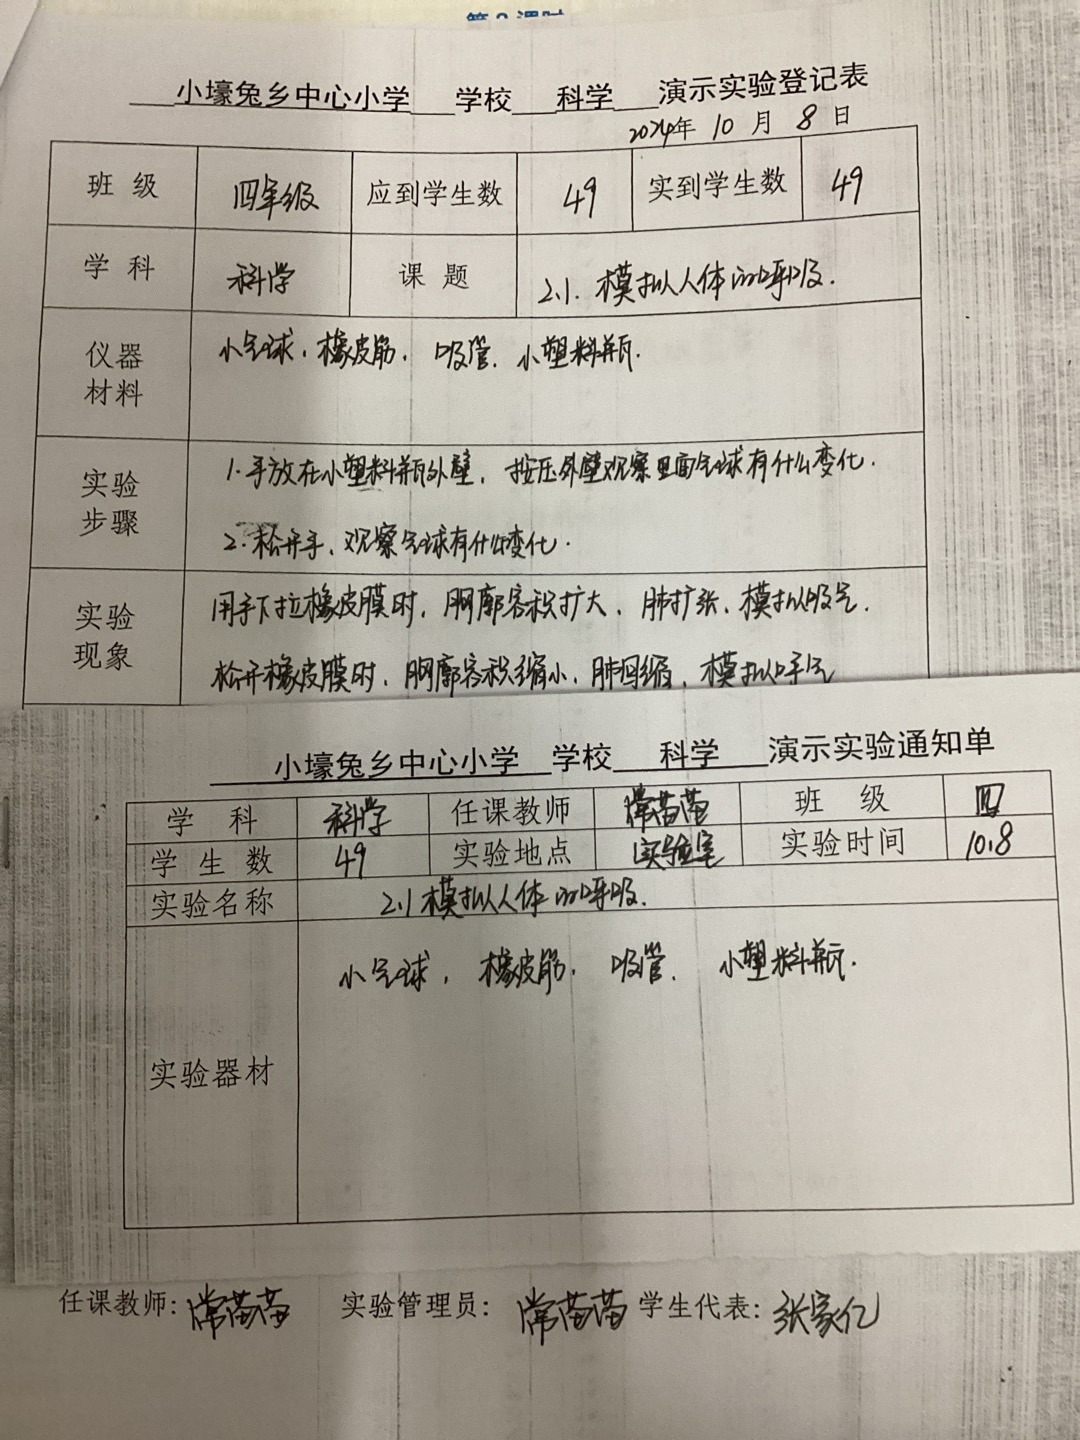 小壕兔乡中心小学 学校 科学 演示实验登记表
2024年 10 月 8 日
班 级 四年级 应到学生数 49 实到学生数 49
学 科 科学 课 题 2.1. 模拟人体的呼吸.
仪器材料 小气球. 橡皮筋. 吸管. 小塑料瓶.
实验步骤 1.手放在小塑料瓶外壁, 按压外壁观察里面气球有什么变化.
2.松开手, 观察气球有什么变化.
实验现象 用手下拉橡皮膜时, 胸廓容积扩大, 肺扩张, 模拟吸气.
松开橡皮膜时, 胸廓容积缩小, 肺回缩, 模拟呼气
小壕兔乡中心小学 学校 科学 演示实验通知单
学 科 科学 任课教师 常苗苗 班 级 四
学 生 数 49 实验地点 实验室 实验时间 10.8
实验名称 2.1 模拟人体的呼吸.
实验器材 小气球, 橡皮筋. 吸管. 小塑料瓶.
任课教师: 常苗苗 实验管理员: 常苗苗 学生代表: 张家亿